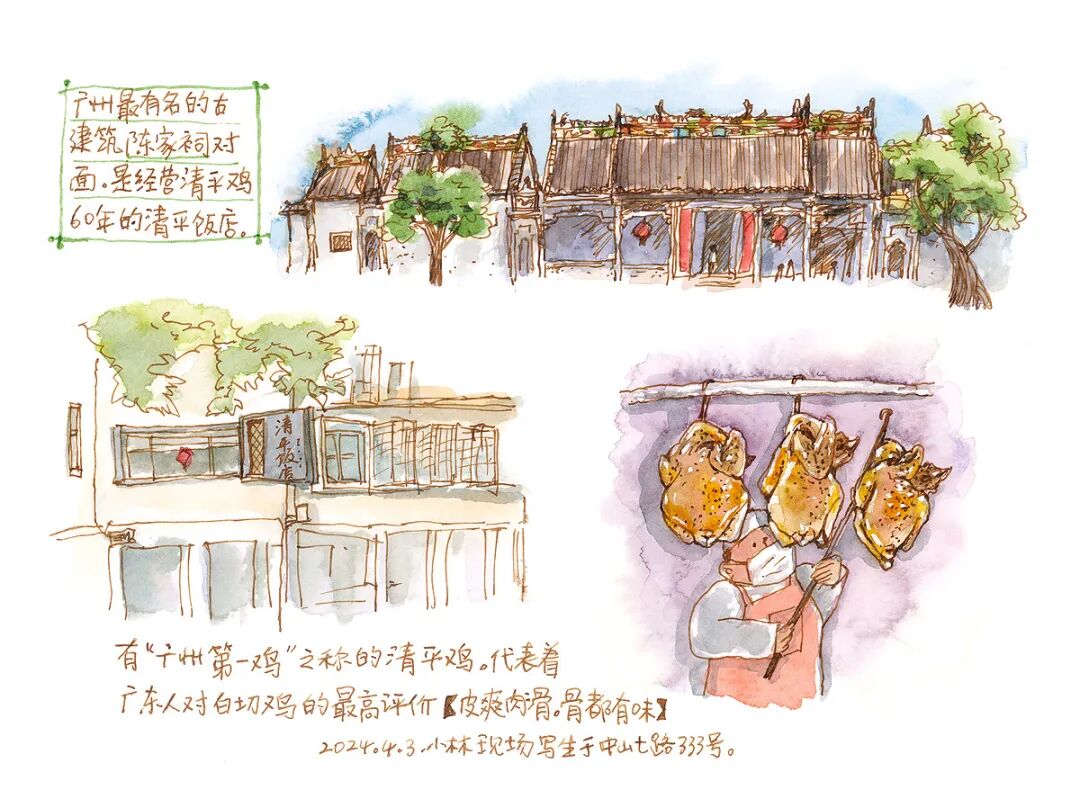 广州最有名的古
建筑陈家祠对
面。是经营清平鸡
60年的清平饭店。
清平饭店
有“广州第一鸡”之称的清平鸡。代表着
广东人对白切鸡的最高评价【皮爽肉滑。骨都有味】
2024.4.3.小林现场写生于中山七路333号。